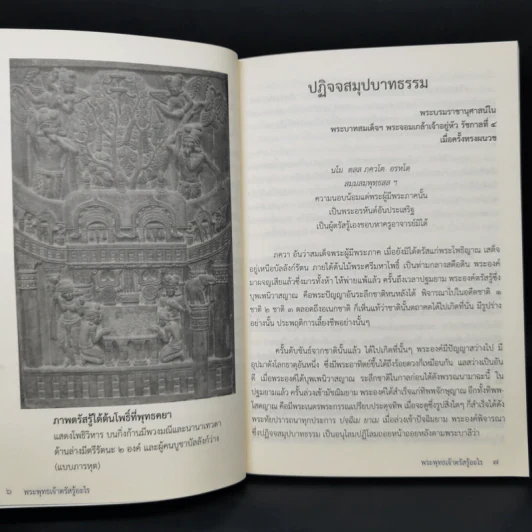 ภาพตรัสรู้ใต้ต้นโพธิ์ที่พุทธคยา
แสดงโพธิวิหาร บนกิ่งก้านมีพวงมณีและนานาเทวดา
ด้านล่างมีตรีรัตนะ ๒ องค์ และผู้คนบูชาบัลลังก์ว่าง
(แบบภารหุต)
๖ พระพุทธเจ้าตรัสรู้อะไร
ปฏิจจสมุปบาทธรรม
พระบรมราชานุศาสน์ใน
พระบาทสมเด็จฯ พระจอมเกล้าเจ้าอยู่หัว รัชกาลที่ ๔
เมื่อครั้งทรงผนวช
นโม ตสส ภควโต อรหโต
สมมสมพุทธสส ฯ
ความนอบน้อมแด่พระผู้มีพระภาคนั้น
เป็นพระอรหันต์อันประเสริฐ
เป็นผู้ตรัสรู้เองชอบหาครูอาจารย์มิได้
ภควา อันว่าสมเด็จพระผู้มีพระภาค เมื่อยังมิได้ตรัสแก่พระโพธิญาณ เสด็จ
อยู่เหนือบัลลังก์รัตน ภายใต้ต้นไม้พระศรีมหาโพธิ์ เป็นท่ามกลางสดือดิน พระองค์
ผาผจญเสียแล้วซึ่งมารทั้งห้า ให้พ่ายแพ้แล้ว ครั้นถึงเวลาปฐมยาม พระองค์ตรัสรู้ซึ่ง
บุพเพนิวาสญาณ คือพระปัญญาอันระลึกชาติหนหลังได้ พิจารณาไปในอดีตชาติ ๑
ชาติ ๒ ชาติ ๓ ตลอดถึงอเนกชาติ ก็เห็นแท้ว่าชาตินั้นตถาคตได้ไปเกิดที่นั่น มีรูปร่าง
อย่างนั้น ประพฤติการเลี้ยงชีพอย่างนั้นๆ
ครั้นดับขันธ์จากชาตินั้นแล้ว ได้ไปเกิดที่นั้นๆ พระองค์มีปัญญาสว่างไป มี
อุปมาดังโลกธาตุอันหนึ่ง ซึ่งมีพระอาทิตย์ขึ้นได้ถึงร้อยดวงก็เหมือนกัน แลสว่างเป็นอัน
ดี เมื่อพระองค์ได้บุพเพนิวาสญาณ ระลึกชาติในกาลก่อนได้ดังพรรณนามาฉะนี้ ใน
ปฐมยามแล้ว ครั้นล่วงเข้ามัชฌิมยาม พระองค์ได้สำเร็จแก่ทิพพจักษุญาณ อีกทั้งทิพพ-
โสตญาณ คือมีพระเนตรพระกรรณเปรียบประดุจทิพ เมื่อจะดูซึ่งรูปสิ่งใดๆ ก็สำเร็จได้ดัง
พระหัยปรารถนาทุกประการ ปจฺฉิม ยาเม เมื่อล่วงเข้าปัจฉิมยาม พระองค์พิจารณา
ซึ่งปฏิจจสมุปบาทธรรม เป็นอนุโลมปฏิโลมถอยหน้าถอยหลังตามพระบาลีว่า
พระพุทธเจ้าตรัสรู้อะไร ๗